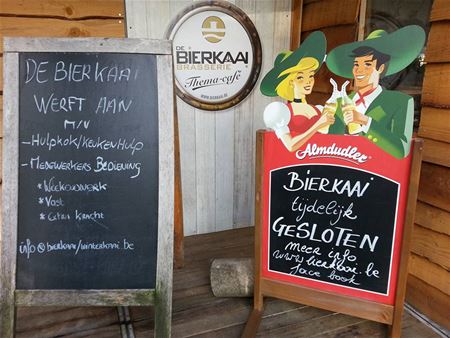 DE BIERKAAI
WERFT AAN
M/V
- HULPKOK/KEUKENHULP
- MEDEWERKERS BEDIENING
* WEEKENDWERK
* VAST
* EXTRA KRACHT
info@bierkaai/winterkaai.be
DE
BIERKAAI
BRASSERIE
Thema-café
WWW.BIERKAAI.BE
Almdudler
BIERKAAI
tijdelijk
GESLOTEN
meer info
www.bierkaai.be
face book